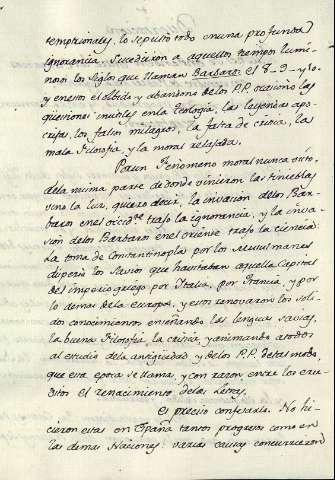 temptionales, lo sepultó todo en una profunda
ignorancia. Sucedieron a aquellos tiempos lumi-
nosos los siglos que llaman Barbaros el 8-9-y 10-
y en estos el olbido y abandono de los P.P. ocasionó las
questiones inutiles en la Teología, las leyendas apo-
crifas, los falsos milagros, la falta de critica, la
mala Filosofia y la moral relajada.
Por un Fenomeno moral nunca visto,
de la misma parte de donde vinieron las tinieblas
vino la luz, quiero decir, la invasion de los Bar-
baros en el occid.te trajo la ignorancia, y la inva-
sion de los Barbaros en el oriente trajo la ciencia.
La toma de Constantinopla por los Musulmanes
disperso los Savios que havitaban aquella Capital
del imperio griego por Italia, por Francia, y por
lo demas de la Europa, y estos renovaron los soli-
dos conocimientos enseñando las lenguas savias,
la buena Filosofia, la critica y animando a todos
al estudio de la antigüedad y de los P.P. de tal modo,
que esta epoca se llama, y con razon, entre los eru-
ditos el renacimiento de las Letras.
Es preciso confesarlo. No hi-
cieron estas en España tantos progresos como en
las demas Naciones: varias causas concurrieron